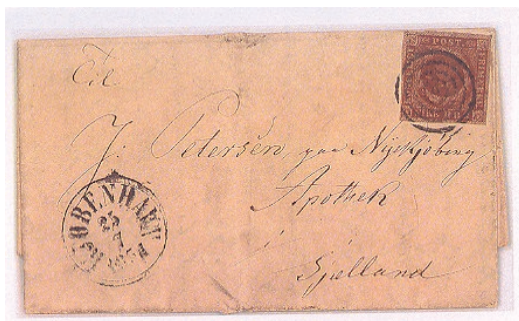 Til
J: Petersen, paa Nyekjöbing
Apothek
i
Sjelland
KIØBENHAVN
25
7
POST